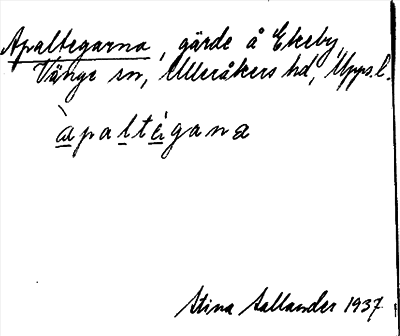 Apaltegarna, gärde å Ekeby,
Vänge sn, Ulleråkers hd, Upps. l.
àpaltègana
Stina Sallander 1937